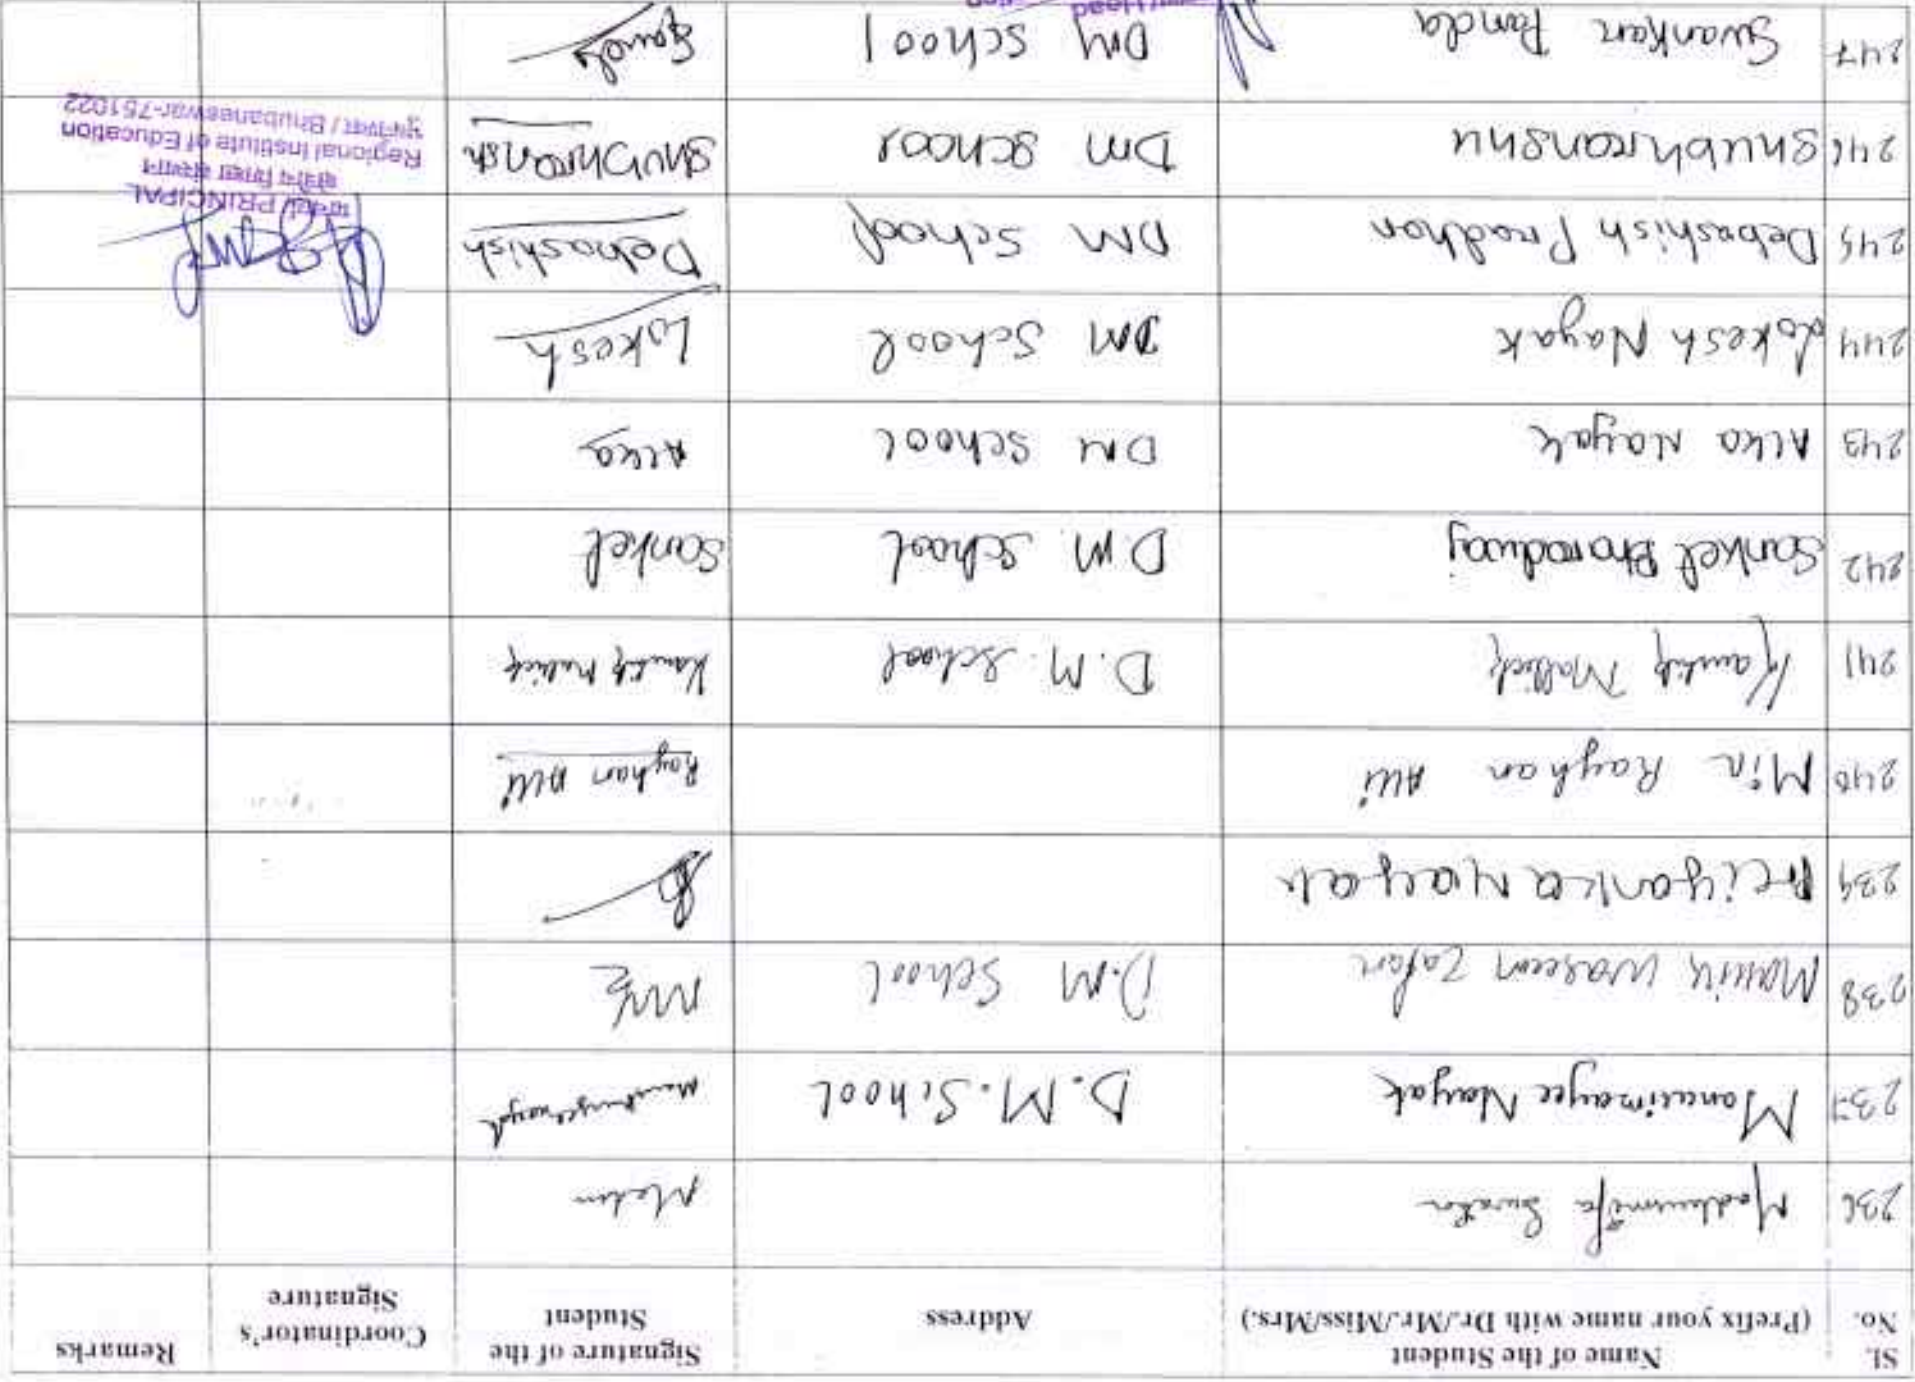 Sl. No. | Name of the Student (Prefix your name with Dr./Mr./Miss/Mrs.) | Address | Signature of the Student | Coordinator's Signature | Remarks
236
237 Nayak D.M.School
238 Waseem Zafar D.M School
239 Priyanka Nayak
240 Min Rayhan Alli Rayhan Alli
241 Mallick D.M. School
242 Sanket Bharadwaj D.M. School Sanket
243 Alka Nayak DM School Alka
244 Lokesh Nayak DM School Lokesh
245 Debashish Pradhan DM School Debashish
246 Shubhranshu DM School Shubhransh
247 Swankar Panda DM School
प्राचार्य/PRINCIPAL
क्षेत्रीय शिक्षा संस्थान
Regional Institute of Education
भुवनेश्वर / Bhubaneswar-751022
Head